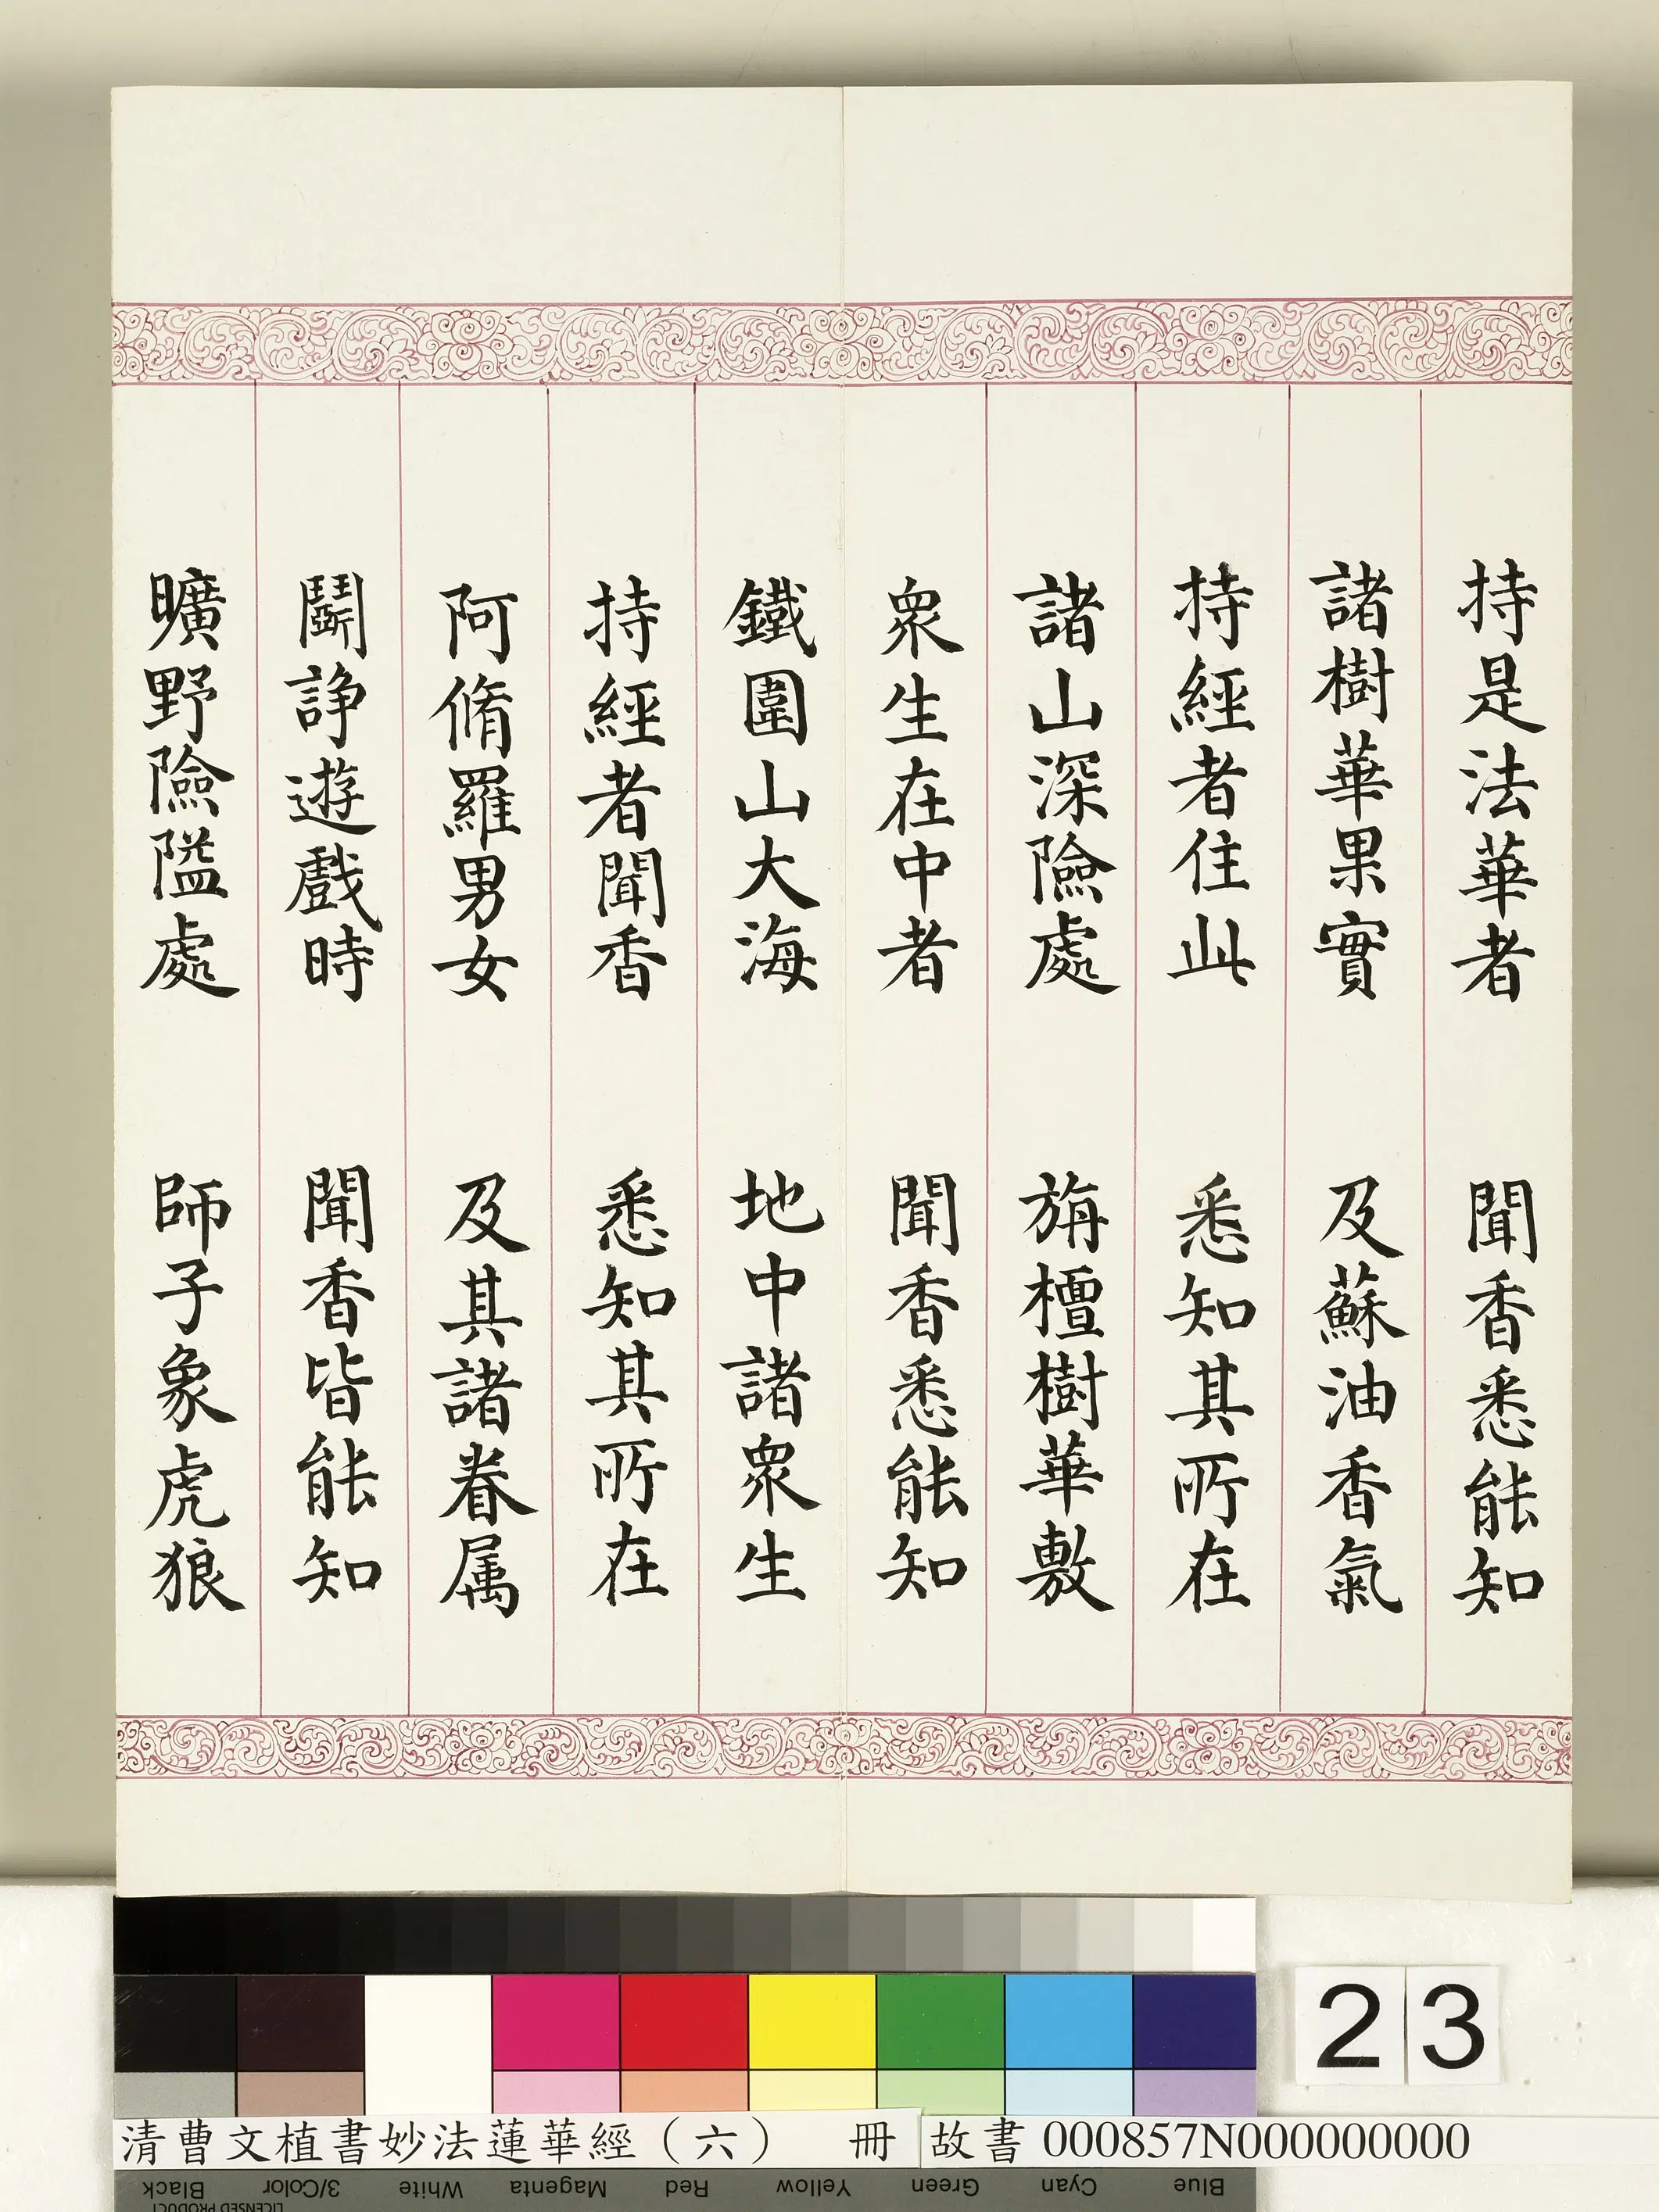 持是法華者　聞香悉能知
諸樹華果實　及蘇油香氣
持經者住此　悉知其所在
諸山深險處　旃檀樹華敷
眾生在中者　聞香悉能知
鐵圍山大海　地中諸眾生
持經者聞香　悉知其所在
阿脩羅男女　及其諸眷属
鬪諍遊戲時　聞香皆能知
曠野險隘處　師子象虎狼
23
清曹文植書妙法蓮華經（六）　冊
故書 000857N000000000
Black 3/Color White Magenta Red Yellow Green Cyan Blue
LICENSED PRODUCT